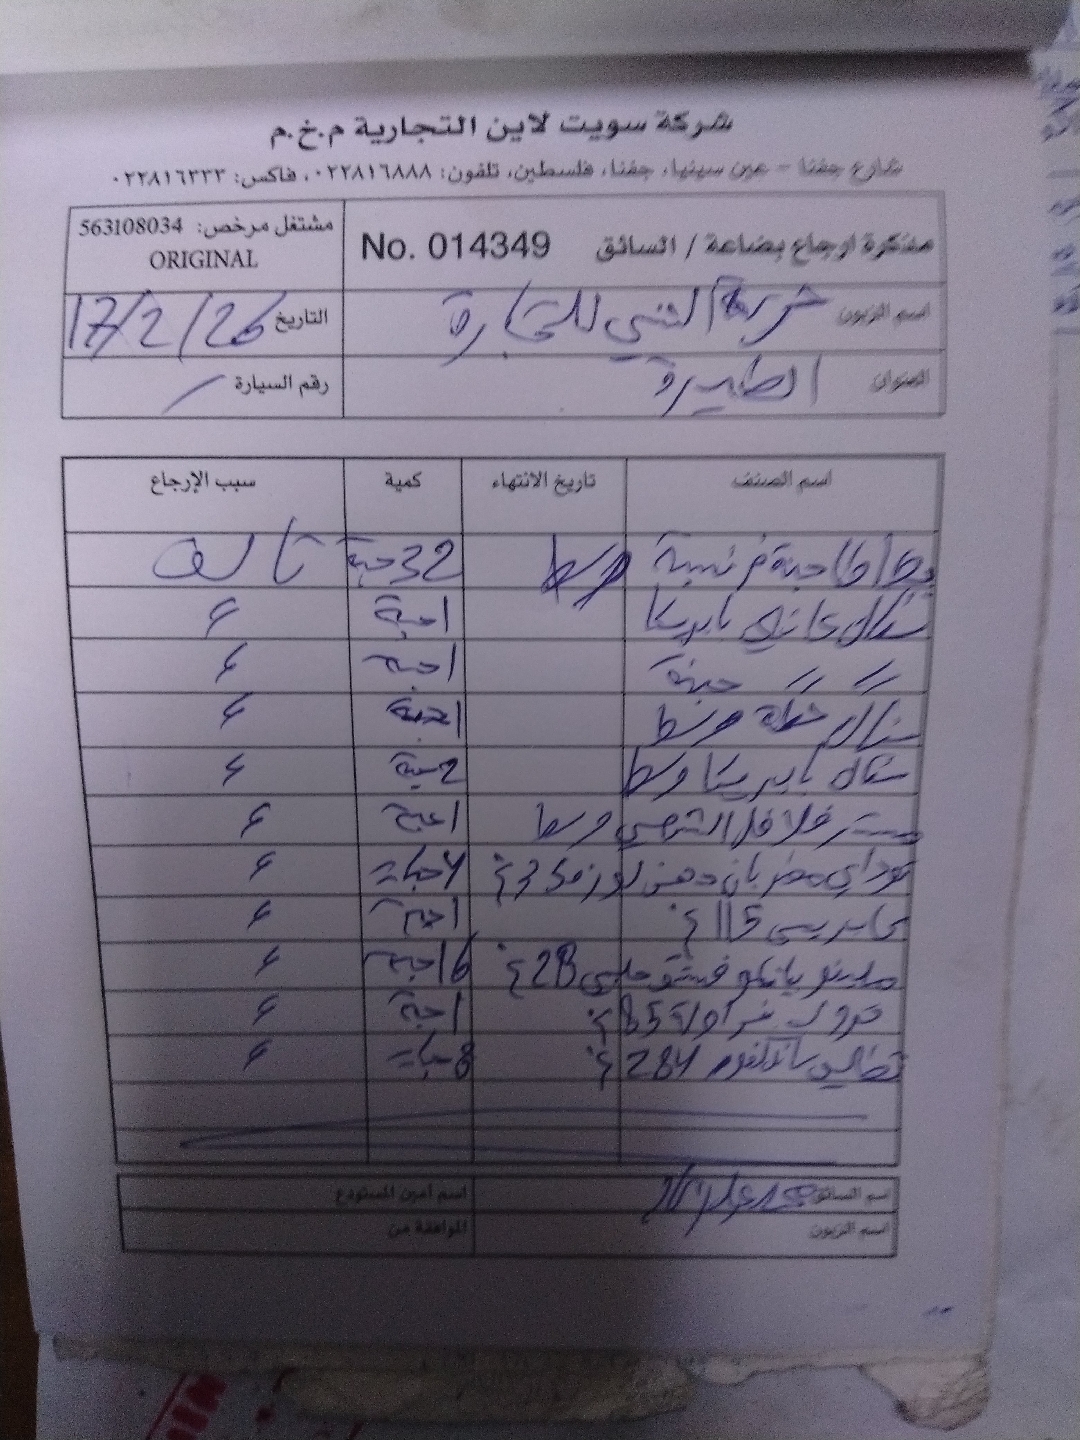 شركة سويت لاين التجارية م.خ.م
شارع جفنا - عين سينيا، جفنا، فلسطين، تلفون: ٠٢٢٨١٦٨٨٨، فاكس: ٠٢٢٨١٦٣٣٣
مذكرة ارجاع بضاعة / السائق No. 014349 مشتغل مرخص: 563108034
ORIGINAL
اسم الزبون شركة الشني للتجارة التاريخ 17/2/26
العنوان الطيرة رقم السيارة
اسم الصنف تاريخ الانتهاء كمية سبب الإرجاع
بطاطا جبنة فرنسية وسط 32 حبة تالف
بابريكا 1 حبة "
" " جبنة 1 حبة "
وسط 1 حبة "
بابريكا وسط 2 حبة "
مستر فلافل الشمسي وسط 1 حبة "
دهن لوز 35 غ 4 حبات "
115 غ 1 حبة "
فستق حلبي 28 غ 16 حبة "
فراولة 85 غ 1 حبة "
284 غ 8 حبات "
اسم السائق اسم أمين المستودع
اسم الزبون الموافقة من